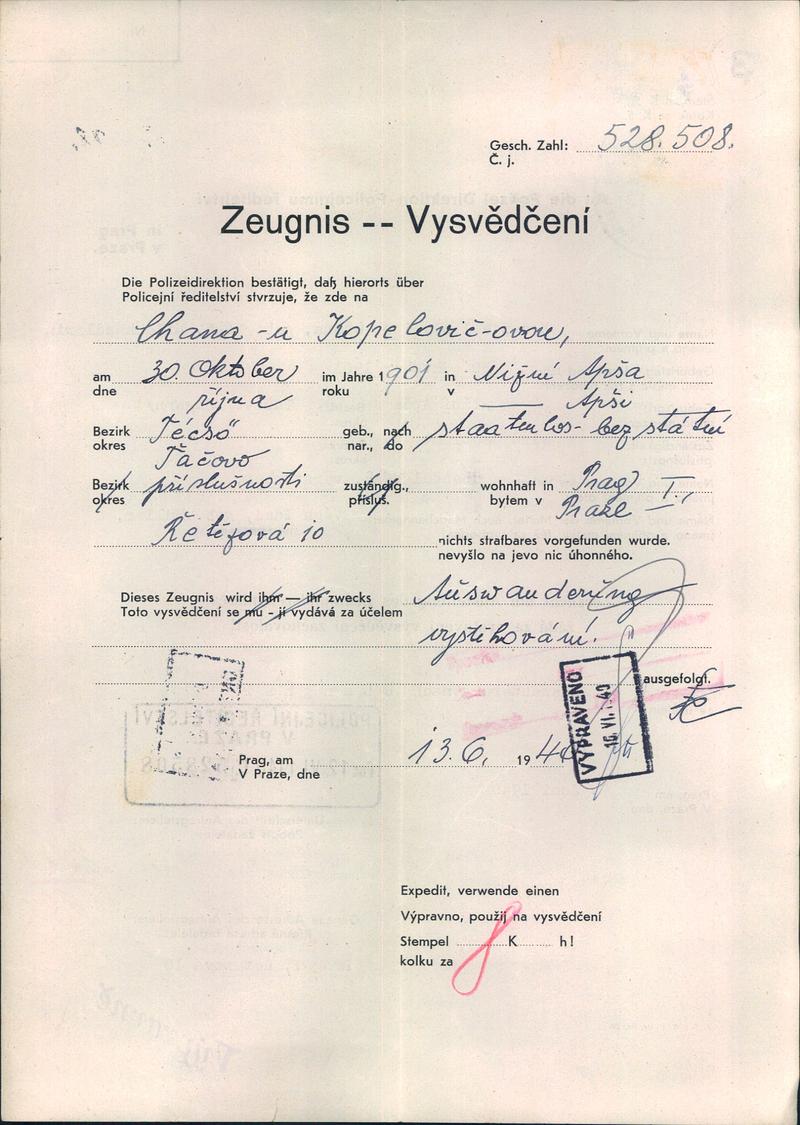 Gesch. Zahl: 528.508.
Č. j.
Zeugnis -- Vysvědčení
Die Polizeidirektion bestätigt, daß hierorts über
Policejní ředitelství stvrzuje, že zde na
Chana -u Kopelovič-ovou,
am 30. Oktober im Jahre 1901 in Nižní Apša
dne října roku v — Apši
Bezirk Técső geb., nach staatenlos - bez státní
okres Tačovo nar., do
Bezirk příslušnosti zuständig., wohnhaft in Prag I.,
okres přísluš. bytem v Praze —
Řetězová 10 nichts strafbares vorgefunden wurde.
nevyšlo na jevo nic úhonného.
Dieses Zeugnis wird ihm — ihr zwecks Auswanderung
Toto vysvědčení se mu - jí vydává za účelem
vystěhování.
ausgefolgt.
VYPRAVENO
16. VI. 40
Prag, am 13.6. 1940
V Praze, dne
Expedit, verwende einen
Výpravno, použij na vysvědčení
Stempel K h!
kolku za